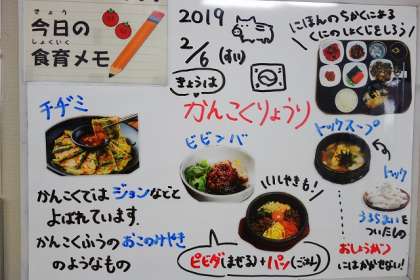 きょう
今日の
しょくいく
食育メモ
2019
2/6 (すい)
きょうは
かんこくりょうり
にほんのちかくにある
くにのしょくじをしろう!
チヂミ
かんこくでは ジョンなどと
よばれています。
かんこくふうの おこのみやき
のようなもの
ビビンバ
いしやきも!
ビビダ(まぜる)+パッ(ごはん)
トックスープ
トック
うるちまいを
ついたもの
おしょうがつ
にはかかせない!